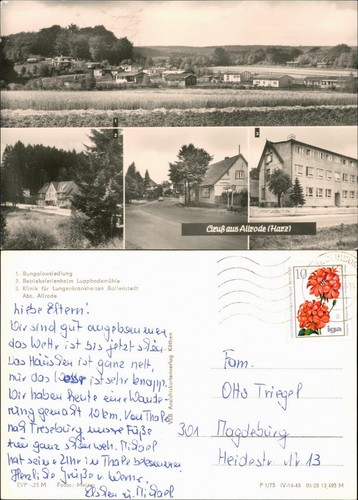 1
2
3
Gruß aus Allrode (Harz)
1. Bungalowsiedlung
2. Betriebsferienheim Luppbodemühle
3. Klinik für Lungenkrankheiten Ballenstedt
Abt. Allrode
10
iga
Liebe Eltern!
Wir sind gut angekommen,
das Wetter ist bis jetzt schön.
Das Häuschen ist ganz nett,
nur das Wasser ist sehr knapp.
Wir haben heute eine Wande-
rung gemacht 10 km. Von Thale
nach Treseburg unsere Füße
tun ganz schön weh.
hat seine Uhr in Thale bekommen
Herzliche Grüße u.
u.
VEB Ansichtskartenverlag Köthen
Fam.
Otto Triegel
301 Magdeburg
Heidestr. Nr 13
EVP -,25 M
Fotos:
P 1/73 IV-14-48 05 08 13 492 M